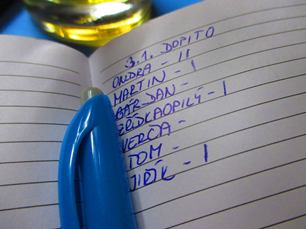 3.1. DOPITO
ONDRA - II
MARTIN - I
BÁR-DAN -
ZRÍDKAOPILÝ - I
VERČA -
TOM -
JIŘÍK - I